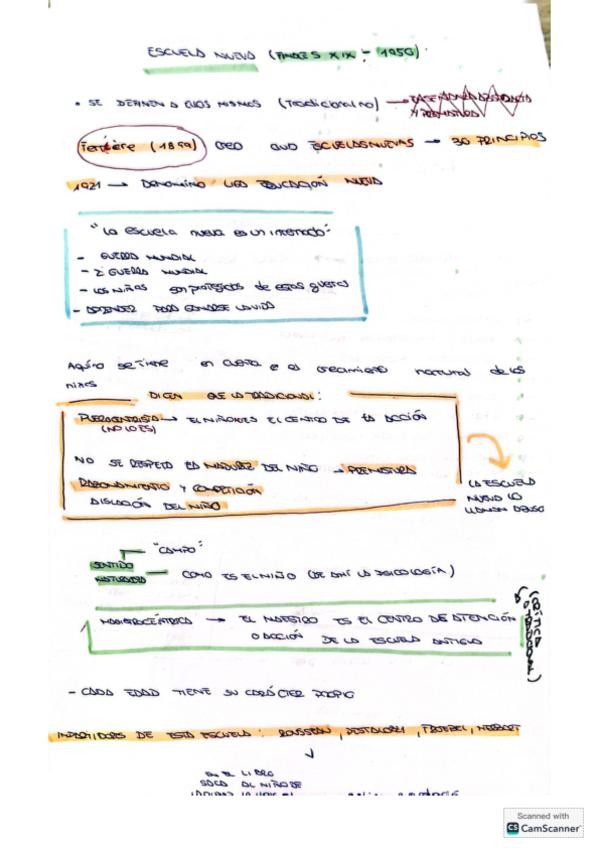 ESCUELA NUEVA (FINALES XIX - 1950).
• SE DEFINEN A ELLOS MISMOS (Tradicional no) →
Ferrière (1899) CREO QUE ESCUELAS NUEVAS → 30 PRINCIPIOS
1921 → DENOMINO LIGA EDUCACIÓN NUEVA
"La escuela nueva es un internado"
- GUERRA MUNDIAL
- 2ª GUERRA MUNDIAL
- LOS NIÑAS son protegidos de esas guerras
- DEFENDER PARA GANARSE LA VIDA
Aquí no se tiene en cuenta el crecimiento natural de los
niños
DICEN QUE LA TRADICIONAL:
PUEROCENTRISTA → EL NIÑO ES EL CENTRO DE LA ACCIÓN
(NO LO ES)
NO SE RESPETA LA MADUREZ DEL NIÑO → PREMATURA
RAZONAMIENTO Y COMPETICIÓN
DISLOCACIÓN DEL NIÑO
LA ESCUELA
NUEVA LO
LLAMAN
"CAMPO"
SENTIDO
NATURALEZA COMO ES EL NIÑO (DE AHÍ LA PSICOLOGÍA)
MAGISTROCÉNTRICA → EL MAESTRO ES EL CENTRO DE ATENCIÓN
O ACCIÓN DE LA ESCUELA ANTIGUA
(CRÍTICA
TRADICIONAL)
- CADA EDAD TIENE SU CARÁCTER PROPIO
DE ESTA ESCUELA: ROUSSEAU, PESTALOZZI, FROEBEL, HERBART
↓
EN EL LIBRO
SACA AL NIÑO DE
Scanned with
CS CamScanner